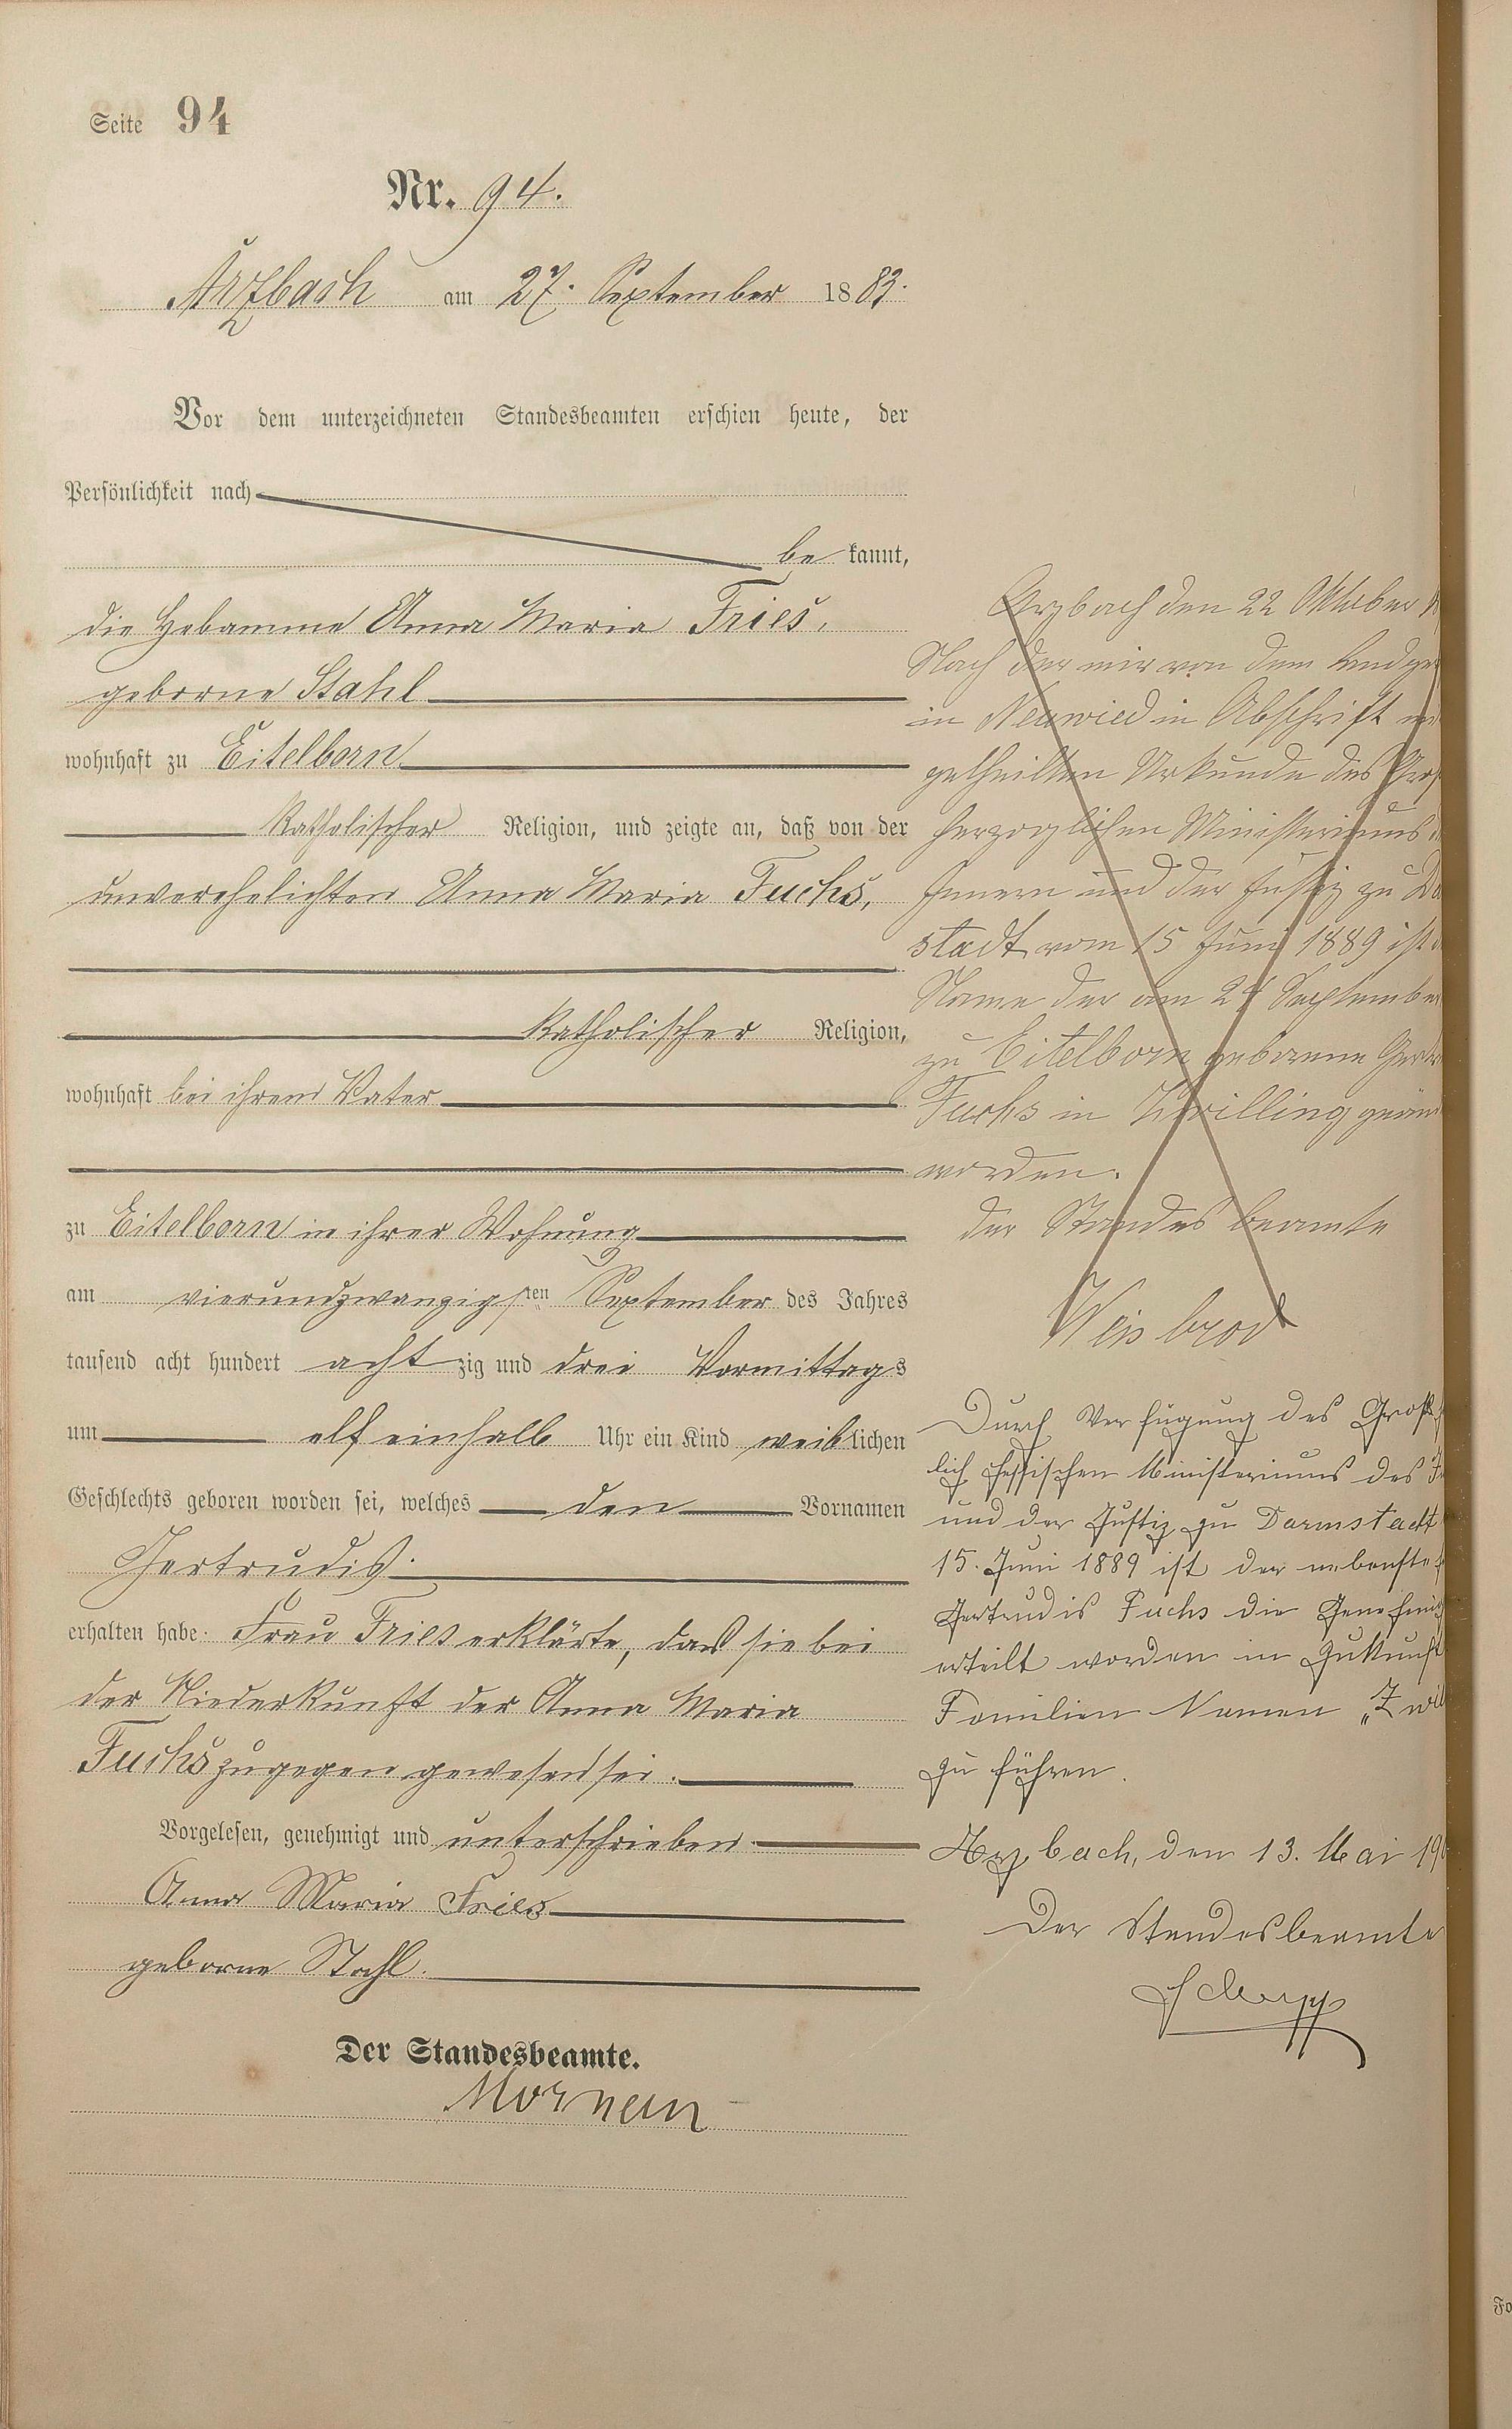 Seite 94
Nr. 94.
Arzbach am 27. September 1883.
Vor dem unterzeichneten Standesbeamten erschien heute, der
Persönlichkeit nach
be kannt,
die Hebamme Anna Maria Fries,
geborne Stahl
wohnhaft zu Eitelborn
Katholischer Religion, und zeigte an, daß von der
unverehelichten Anna Maria Fuchs,
Katholischer Religion,
wohnhaft bei ihrem Vater
zu Eitelborn in ihrer Wohnung
am vierundzwanzigsten September des Jahres
tausend acht hundert acht zig und drei Vormittags
um elf einhalb Uhr ein Kind weiblichen
Geschlechts geboren worden sei, welches den Vornamen
Gertrudis.
erhalten habe. Frau Fries erklärte, daß sie bei
der Niederkunft der Anna Maria
Fuchs zugegen gewesen sei.
Vorgelesen, genehmigt und unterschrieben.
Anna Maria Fries
geborne Stahl.
Der Standesbeamte.
Arzbach den 22 Oktober
Nach der mir von dem Landge
in Neuwied in Abschrift mi
getheilten Urkunde des Gros
herzoglichen Ministeriums
Innern und der Justiz zu Da
stadt vom 15 Juni 1889 ist
Name der am 24 September
zu Eitelborn geborenen Gert
Fuchs in Zwilling geän
worden.
der Standes beamte
Weisbrod
Durch Verfügung des Großh
lich hessischen Ministeriums des In
und der Justiz zu Darmstadt
15. Juni 1889 ist der nebenste
Gertrudis Fuchs die Genehmig
erteilt worden in Zukunft
Familien Namen „Zwil
zu führen.
Arzbach, den 13. Mai 19
Der Standesbeamte
Schupp